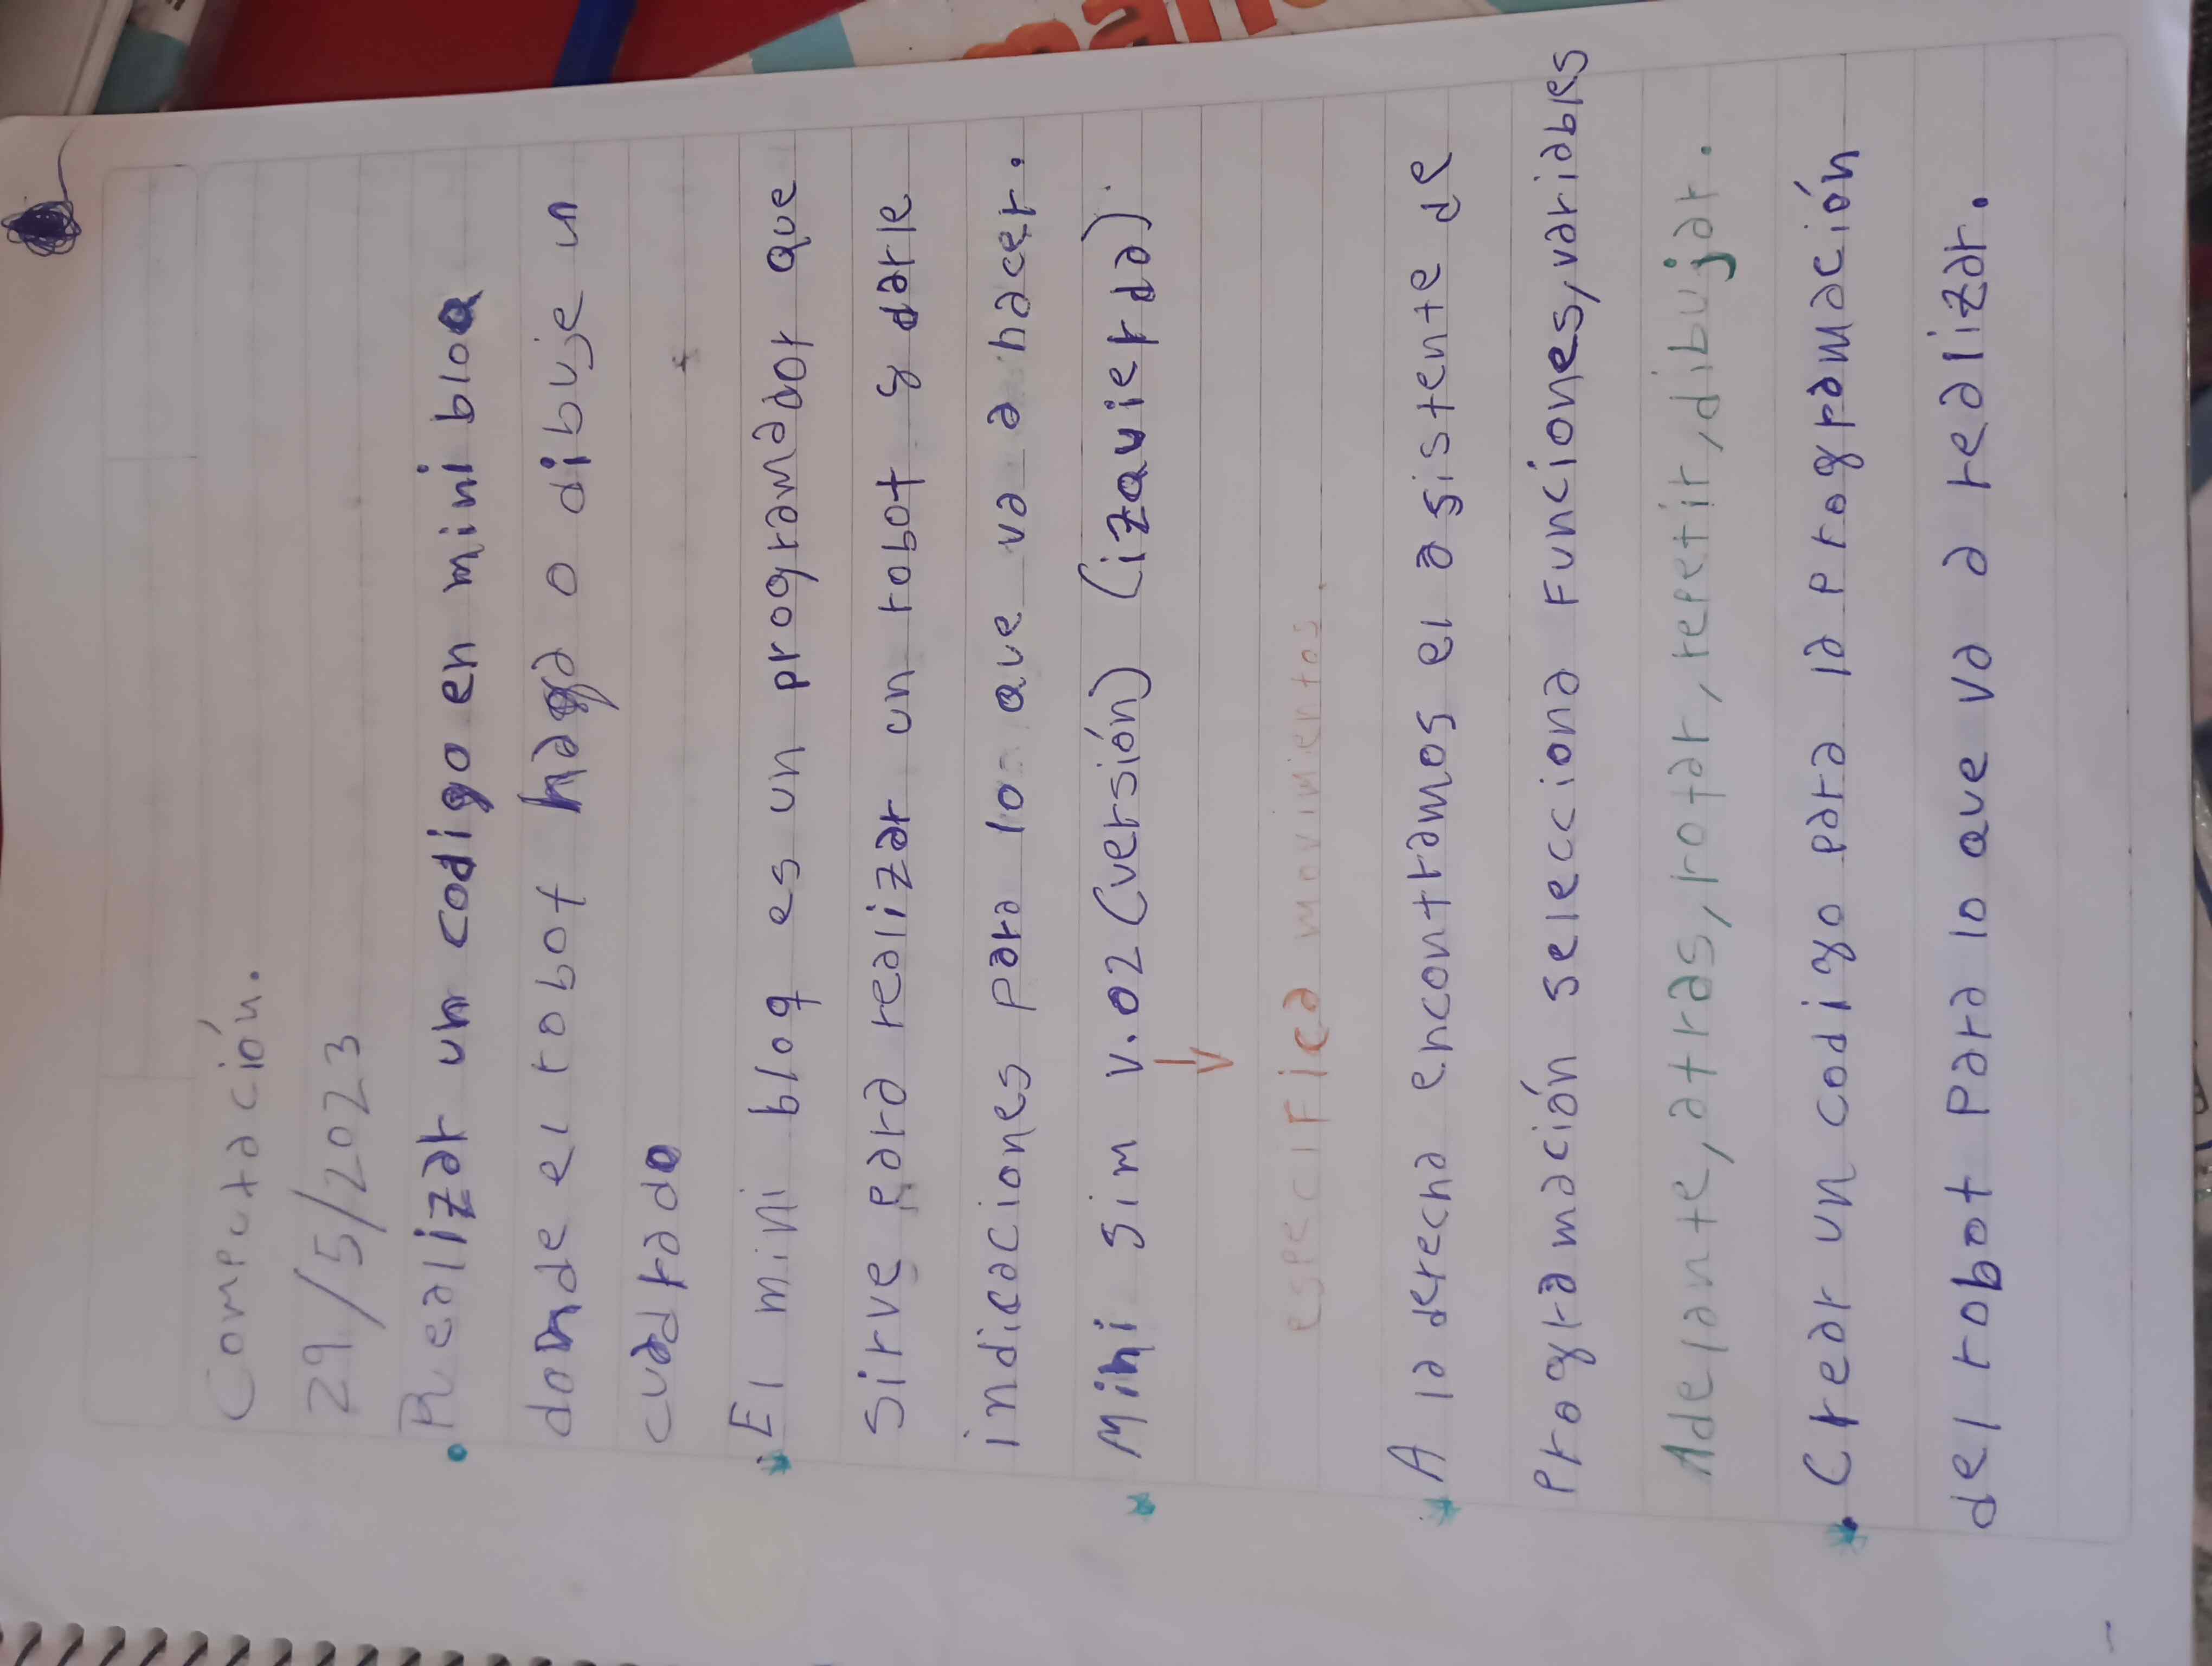 Computación.
29/5/2023
• Realizar un codigo en mini bloq
donde el robot haga o dibuje un
cuadrado
• El mini bloq es un programador que
sirve para realizar un robot y darle
indicaciones para lo que va a hacer.
• Mini sim v.02 (versión) (izquierda)
↓
especifica movimientos.
• A la derecha encontramos el asistente de
Programación selecciona Funciones, variables
Adelante, atras, rotar, repetir, dibujar.
• Crear un codigo para la programación
del robot Para lo que va a realizar.